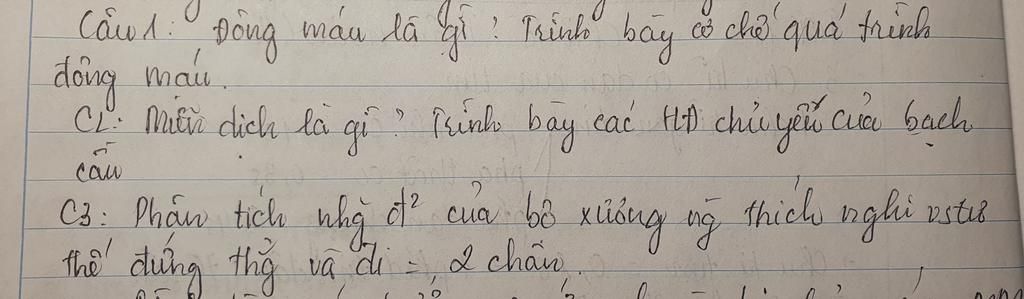 Câu 1: Đông máu là gì? Trình bày cơ chế quá trình
đông máu.
C2: Miễn dịch là gì? Trình bày các HĐ chủ yếu của bạch
cầu
C3: Phân tích nhg đ² của bộ xương ng thích nghi vs tư
thế đứng thg và đi = 2 chân.